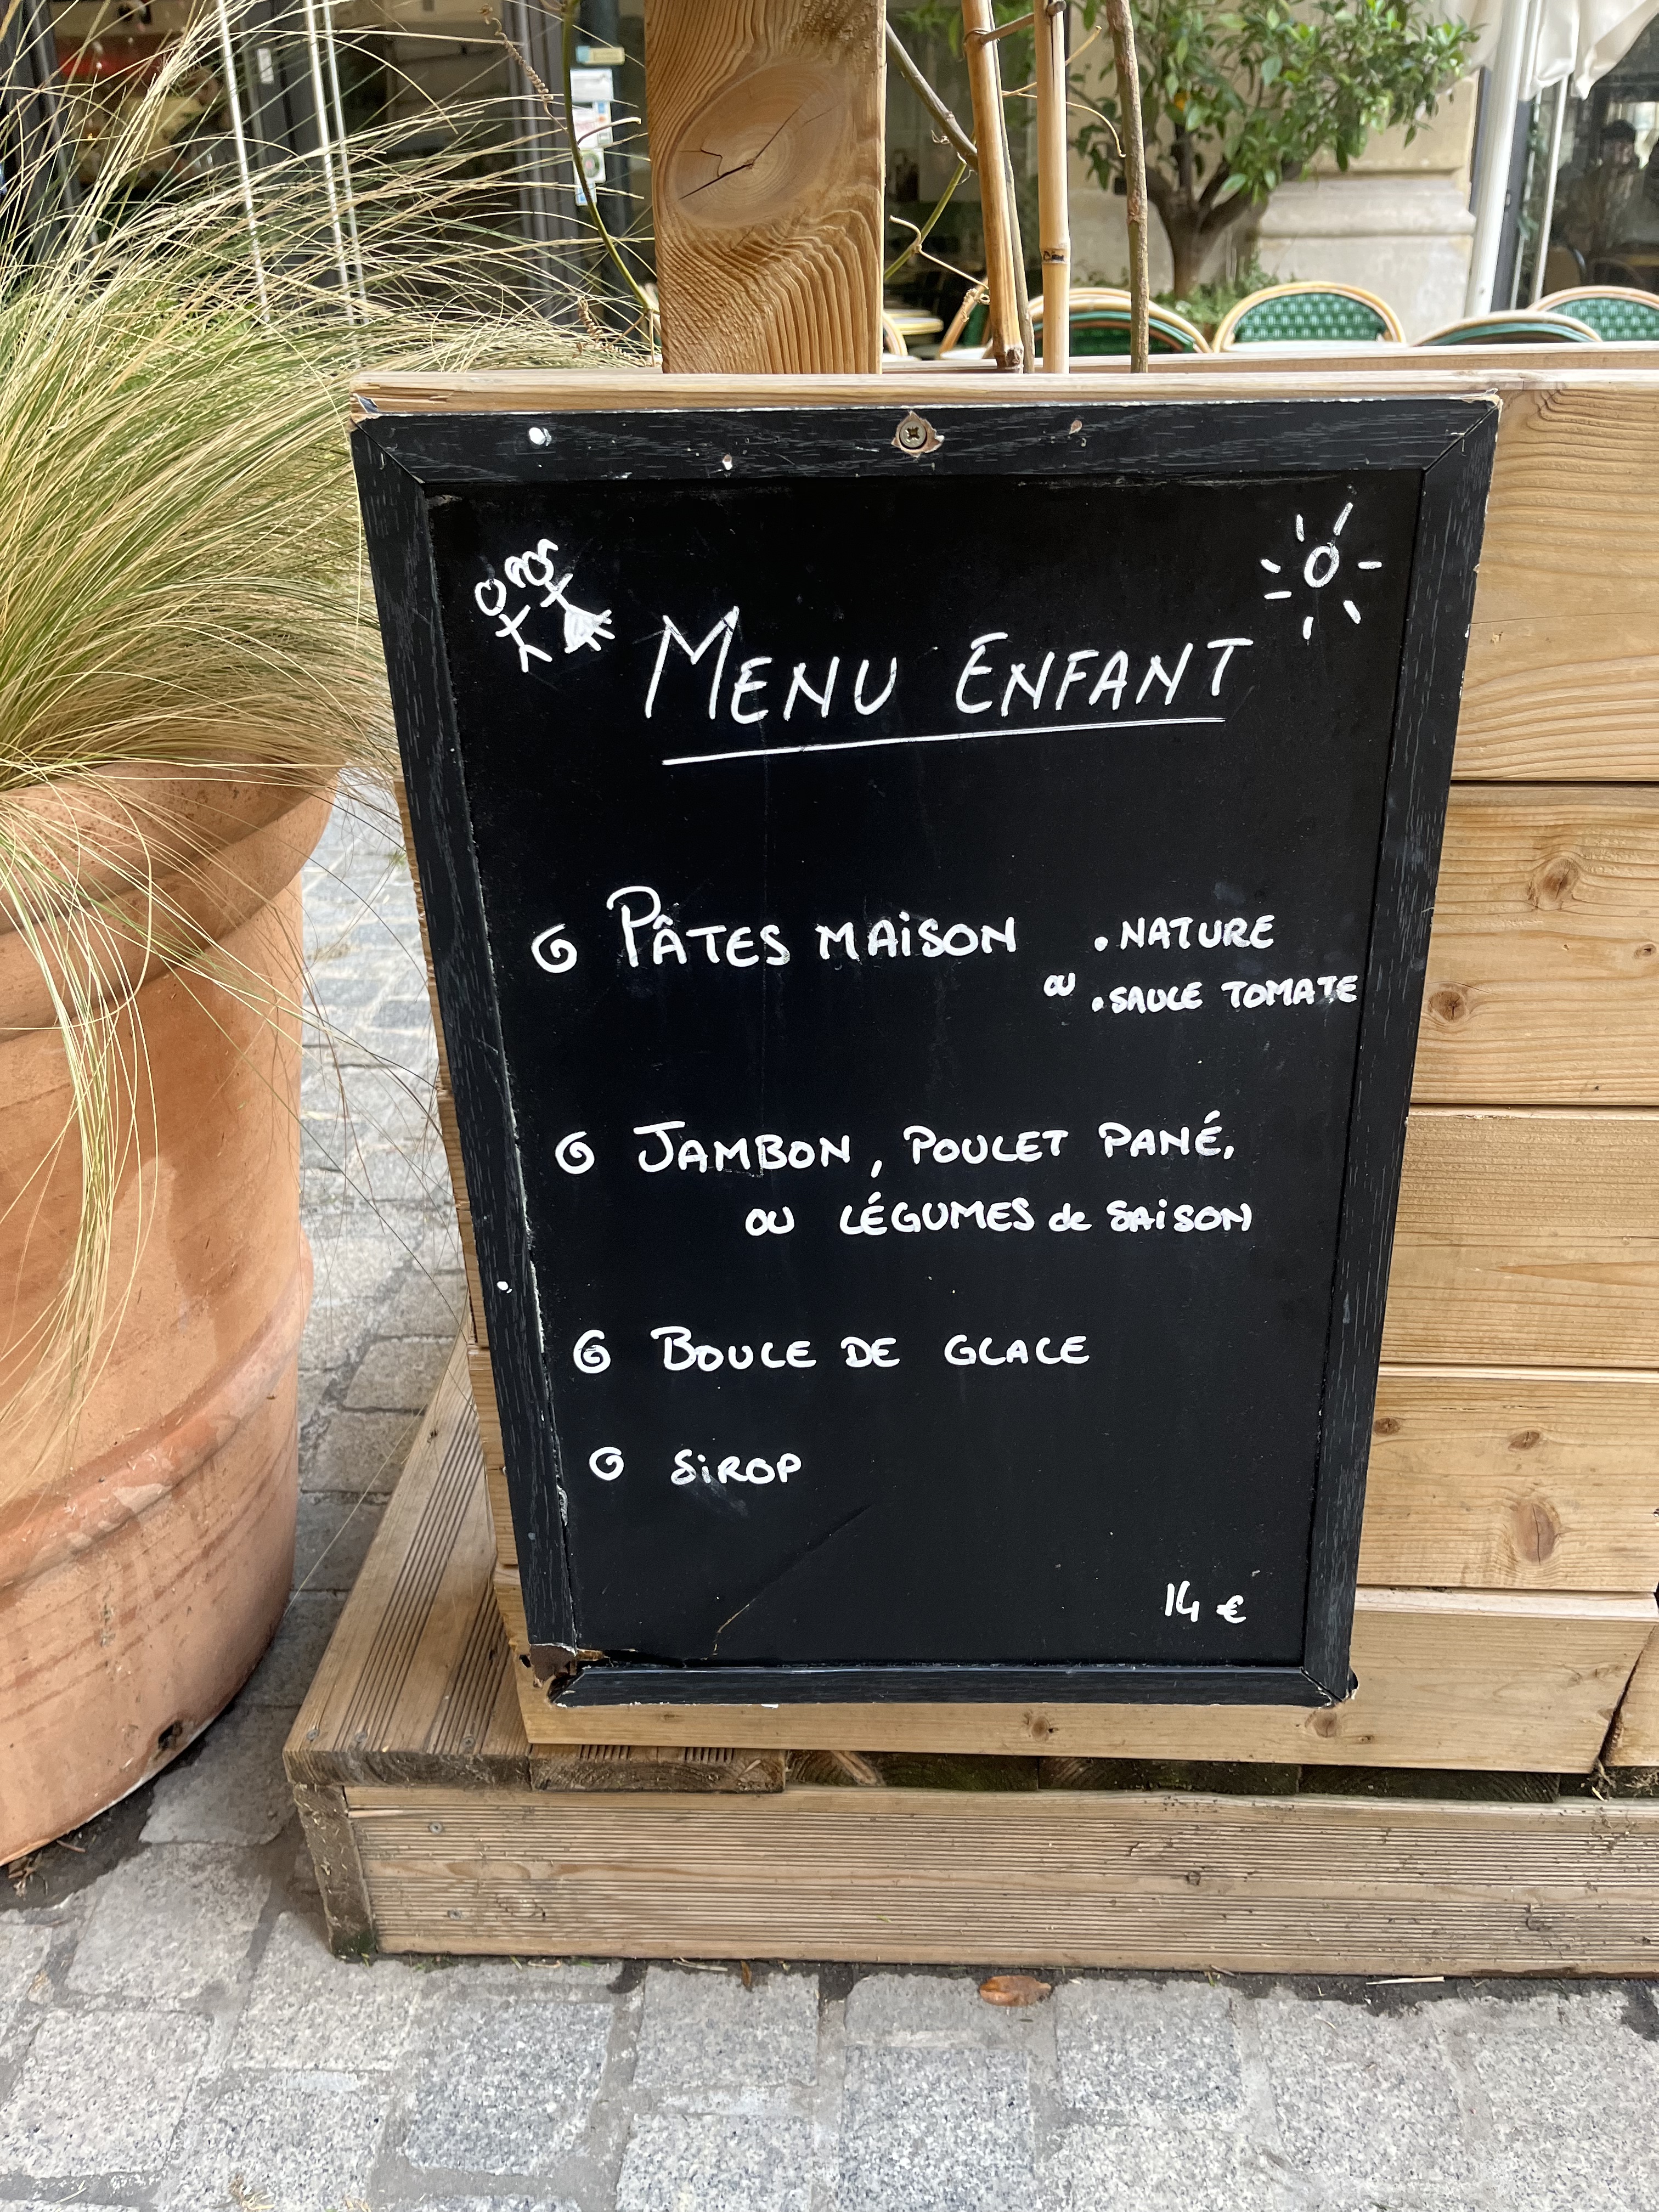 MENU ENFANT
PÂTES MAiSON . NATURE
ou . SAUCE TOMATE
JAMBON, POULET PANÉ,
OU LÉGUMES de SAiSON
BOULE DE GLACE
SiROP
14 €